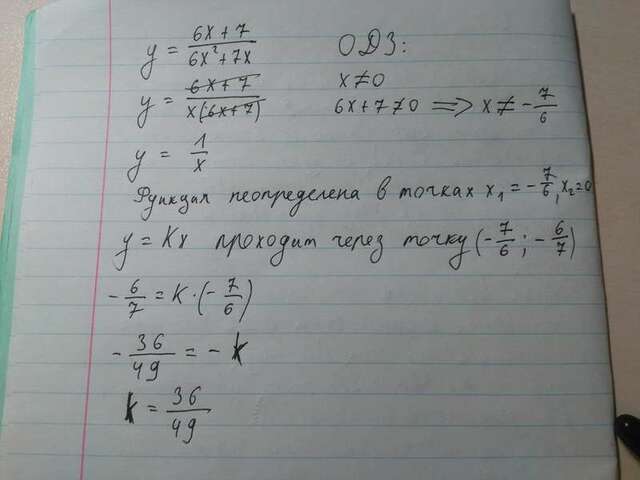 y = (6x+7)/(6x²+7x) ОДЗ:
y = (6x+7)/(x(6x+7)) x≠0
6x+7≠0 ⟹ x≠-7/6
y = 1/x
Фукция неопределена в точках x₁=-7/6, x₂=0
y=Kx проходит через точку (-7/6; -6/7)
-6/7 = K·(-7/6)
-36/49 = -k
k = 36/49